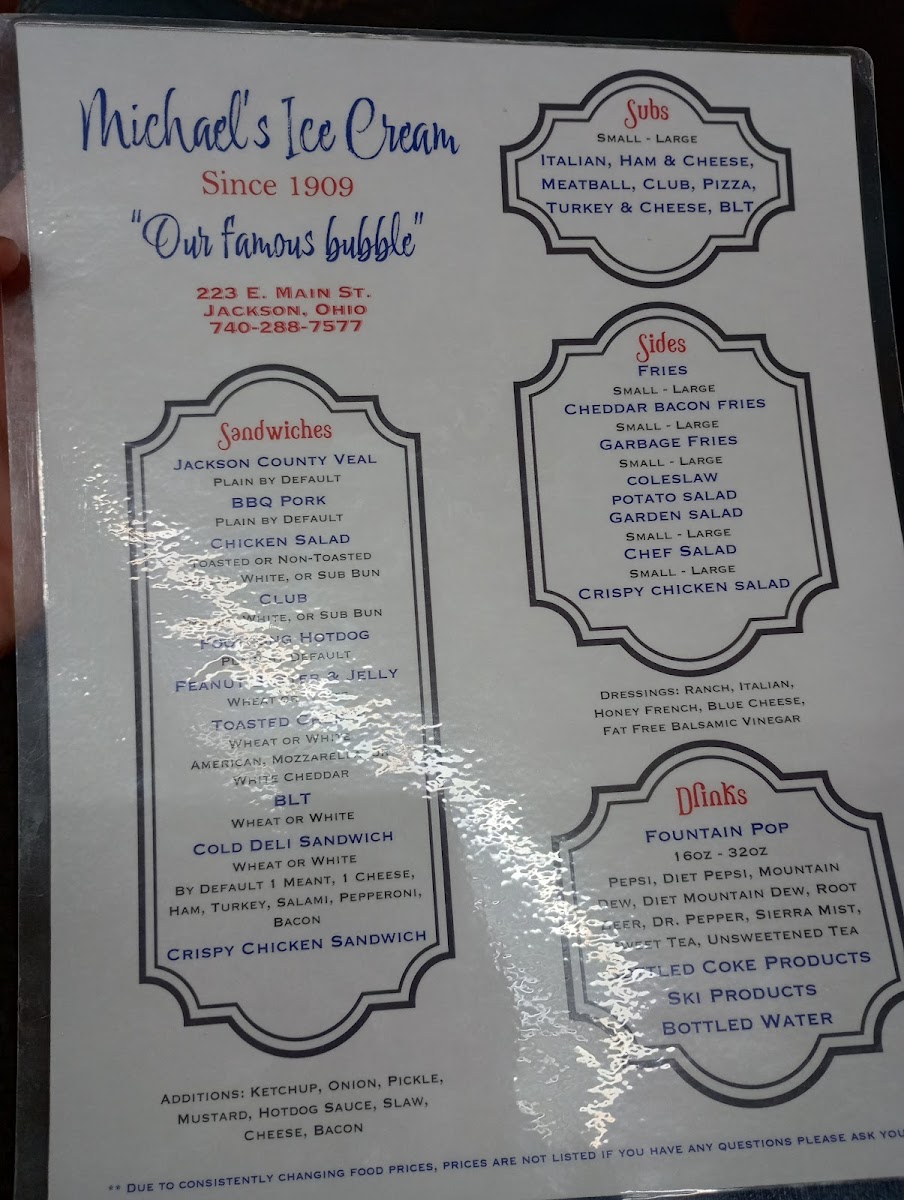 Michael's Ice Cream
Since 1909
"Our famous bubble"
223 E. Main St.
Jackson, Ohio
740-288-7577
Sandwiches
Jackson County Veal
Plain by Default
BBQ Pork
Plain by Default
Chicken Salad
Toasted or Non-Toasted
White, or Sub Bun
Club
White, or Sub Bun
Hotdog
Default
& Jelly
Wheat or
Toasted
Wheat or White
American, Mozzarella or
White Cheddar
BLT
Wheat or White
Cold Deli Sandwich
Wheat or White
By Default 1 Meant, 1 Cheese,
Ham, Turkey, Salami, Pepperoni,
Bacon
Crispy Chicken Sandwich
Additions: Ketchup, Onion, Pickle,
Mustard, Hotdog Sauce, Slaw,
Cheese, Bacon
Subs
Small - Large
Italian, Ham & Cheese,
Meatball, Club, Pizza,
Turkey & Cheese, BLT
Sides
Fries
Small - Large
Cheddar bacon fries
Small - Large
Garbage Fries
Small - Large
coleslaw
potato salad
Garden salad
Small - Large
Chef Salad
Small - Large
Crispy chicken salad
Dressings: Ranch, Italian,
Honey French, Blue Cheese,
Fat Free Balsamic Vinegar
Drinks
Fountain Pop
16oz - 32oz
Pepsi, Diet Pepsi, Mountain
Dew, Diet Mountain Dew, Root
Beer, Dr. Pepper, Sierra Mist,
Sweet Tea, Unsweetened Tea
Bottled Coke Products
Ski Products
Bottled Water
** Due to consistently changing food prices, prices are not listed if you have any questions please ask you